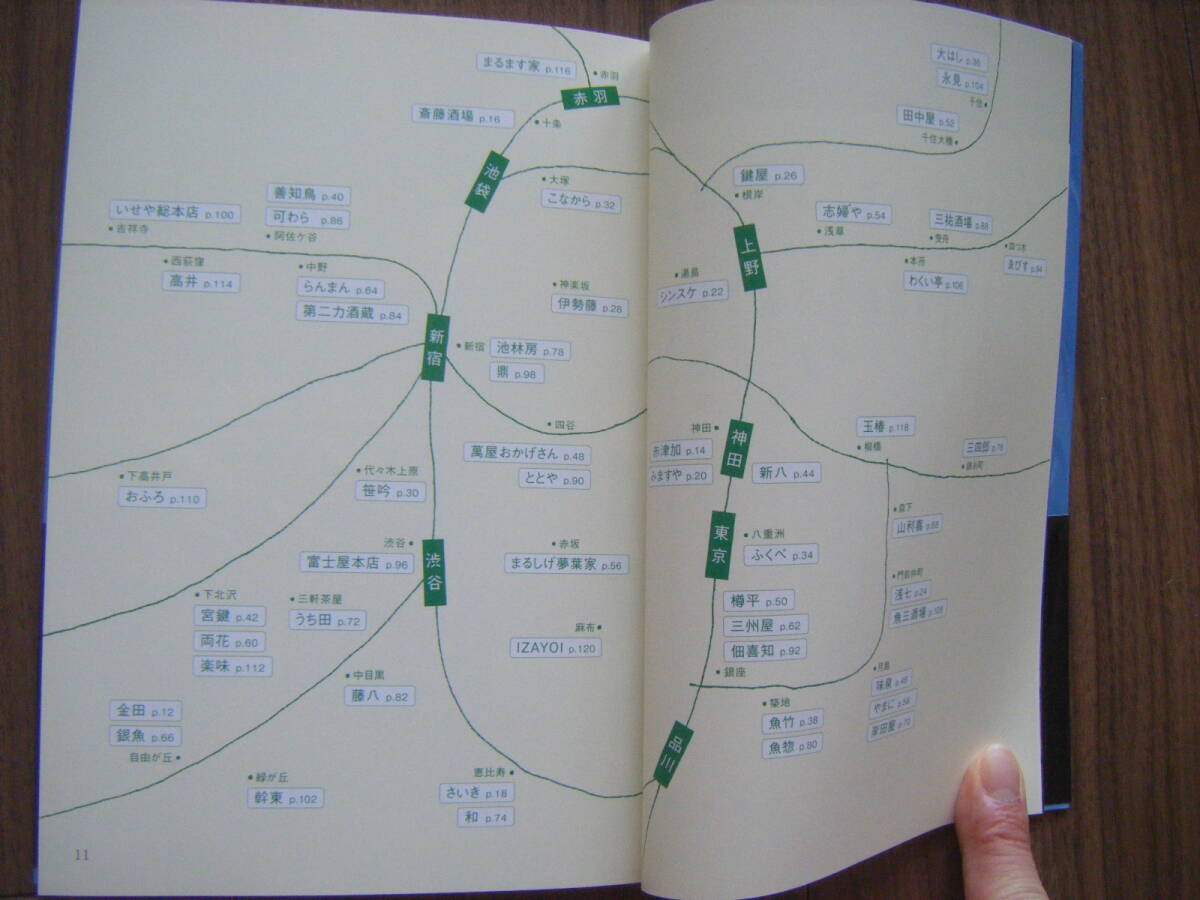 まるます家 p.116
赤羽
赤羽
斎藤酒場 p.16
十条
池袋
大塚
こなから p.32
善知鳥 p.40
可わら p.86
阿佐ケ谷
いせや総本店 p.100
吉祥寺
西荻窪
高井 p.114
中野
らんまん p.64
第二力酒蔵 p.84
神楽坂
伊勢藤 p.28
新宿
新宿
池林房 p.78
鼎 p.98
四谷
萬屋おかげさん p.48
ととや p.90
下高井戸
おふろ p.110
代々木上原
笹吟 p.30
渋谷
富士屋本店 p.96
渋谷
赤坂
まるしげ夢葉家 p.56
下北沢
宮鍵 p.42
両花 p.60
楽味 p.112
三軒茶屋
うち田 p.72
麻布
IZAYOI p.120
中目黒
藤八 p.82
金田 p.12
銀魚 p.66
自由が丘
緑が丘
幹東 p.102
恵比寿
さいき p.18
和 p.74
11
大はし p.36
永見 p.104
千住
田中屋 p.52
千住大橋
鍵屋 p.26
根岸
志婦や p.54
浅草
三祐酒場 p.88
曳舟
四つ木
ゑびす p.94
本所
わくい亭 p.106
上野
湯島
シンスケ p.22
神田
神田
赤津加 p.14
みますや p.20
新八 p.44
玉椿 p.118
柳橋
三四郎 p.76
錦糸町
東京
八重洲
ふくべ p.34
森下
山利喜 p.68
門前仲町
浅七 p.24
魚三酒場 p.108
樽平 p.50
三州屋 p.62
佃喜知 p.92
銀座
築地
魚竹 p.38
魚惣 p.80
月島
味泉 p.46
やまに p.58
岸田屋 p.70
品川